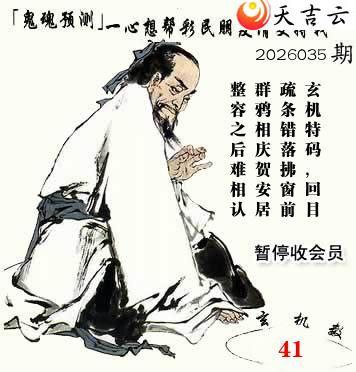 天吉云
「鬼魂预测」一心想帮彩民朋
2026035 期
玄机特码，回目
疏条错落拂窗前
群鸦相庆贺安居
整容之后难相认
暂停收会员
玄机
41